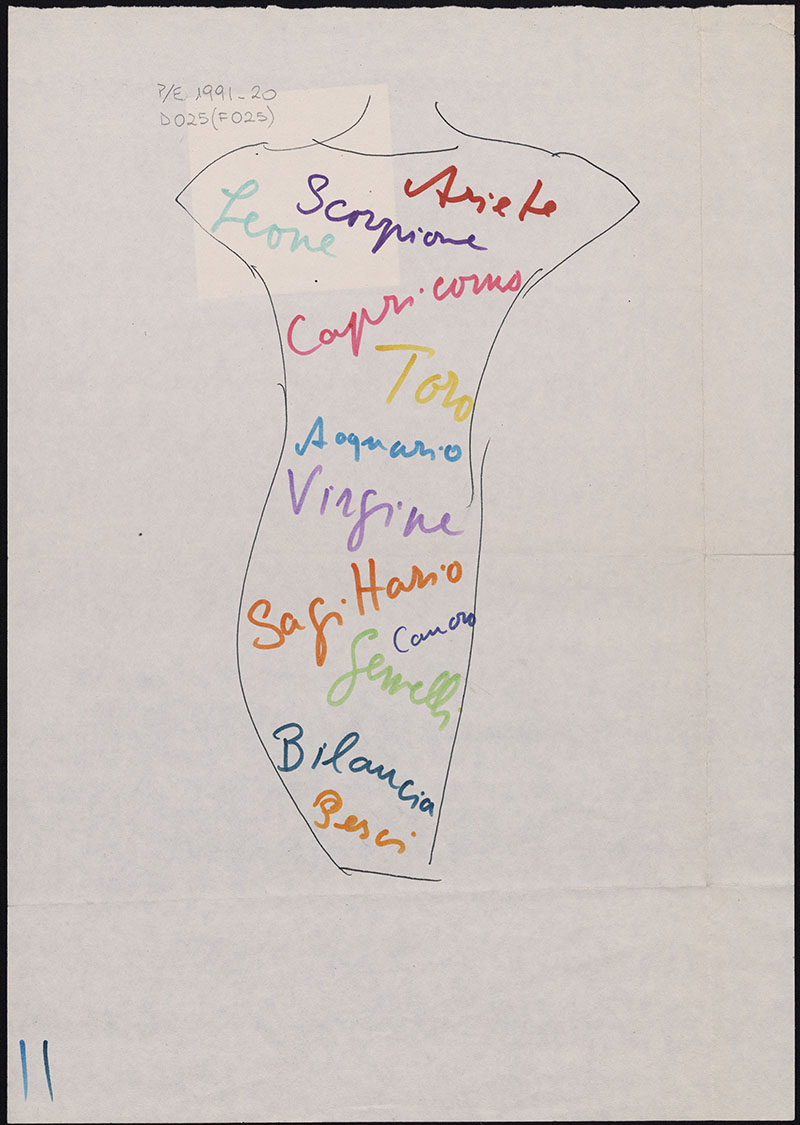 P/E 1991-20
D025(F025)
Leone
Scorpione
Ariete
Capricorno
Toro
Acquario
Virgine
Sagittario
Cancro
Gemelli
Bilancia
Pesci
11